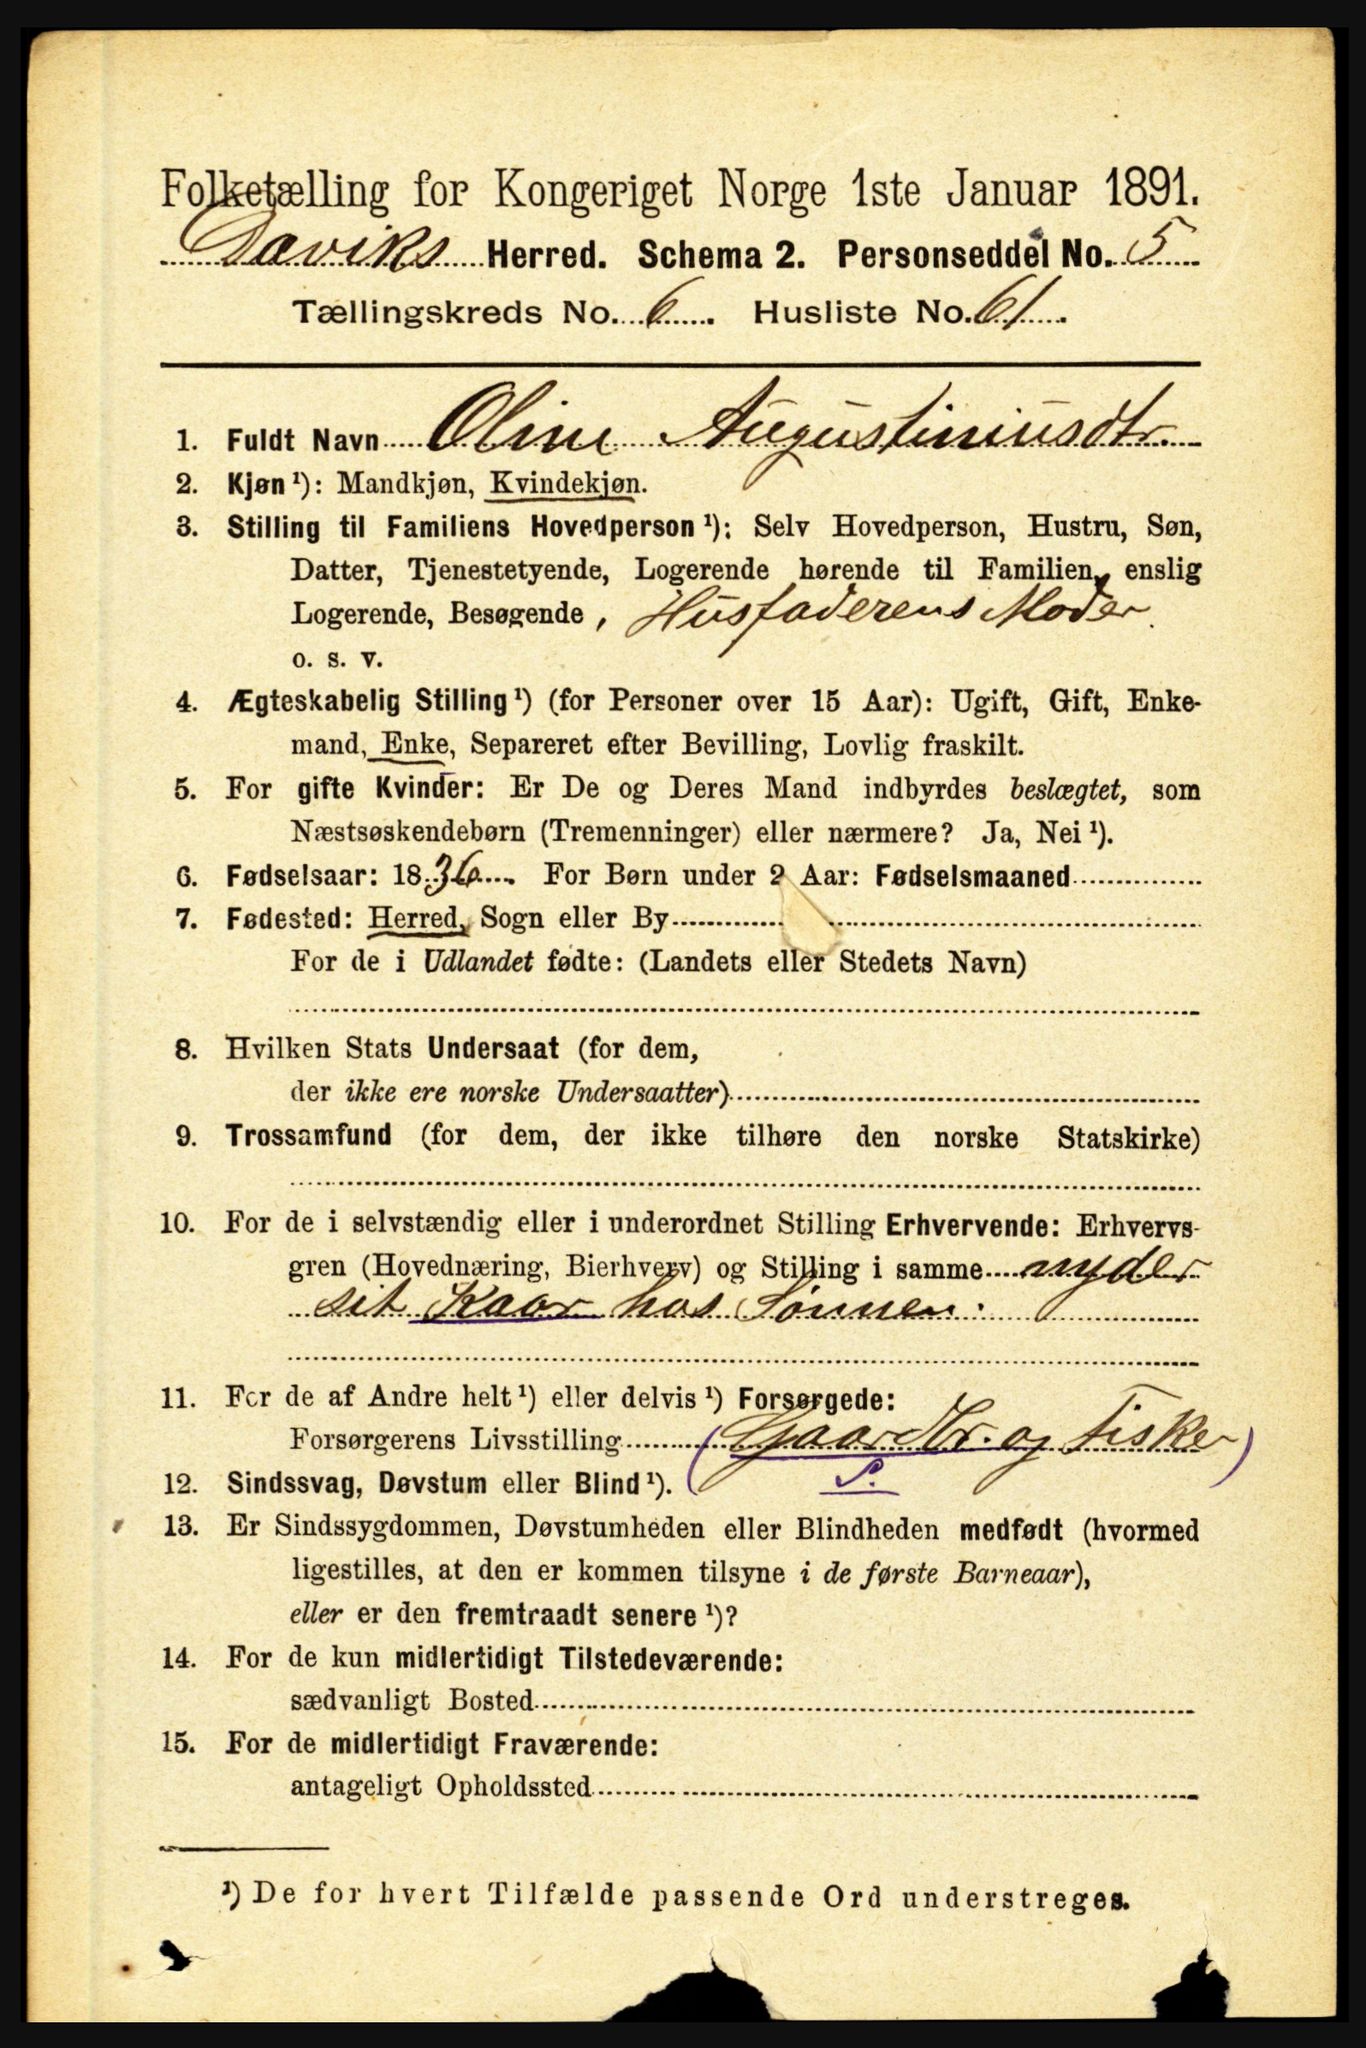 Folketælling for Kongeriget Norge 1ste Januar 1891.
Daviks Herred. Schema 2. Personseddel No. 5
Tællingskreds No. 6. Husliste No. 61.
1. Fuldt Navn Oline Augustiniusdtr.
2. Kjøn ¹): Mandkjøn, Kvindekjøn.
3. Stilling til Familiens Hovedperson ¹): Selv Hovedperson, Hustru, Søn,
Datter, Tjenestetyende, Logerende hørende til Familien, enslig
Logerende, Besøgende, Husfaderens Moder.
o. s. v.
4. Ægteskabelig Stilling ¹) (for Personer over 15 Aar): Ugift, Gift, Enke-
mand, Enke, Separeret efter Bevilling, Lovlig fraskilt.
5. For gifte Kvinder: Er De og Deres Mand indbyrdes beslægtet, som
Næstsøskendebørn (Tremenninger) eller nærmere? Ja, Nei ¹).
6. Fødselsaar: 1836. For Børn under 2 Aar: Fødselsmaaned
7. Fødested: Herred, Sogn eller By
For de i Udlandet fødte: (Landets eller Stedets Navn)
8. Hvilken Stats Undersaat (for dem,
der ikke ere norske Undersaatter)
9. Trossamfund (for dem, der ikke tilhøre den norske Statskirke)
10. For de i selvstændig eller i underordnet Stilling Erhvervende: Erhvervs-
gren (Hovednæring, Bierhverv) og Stilling i samme nyder
sit Kaar hos Sønnen.
11. For de af Andre helt ¹) eller delvis ¹) Forsørgede:
Forsørgerens Livsstilling (Gaardbr. og Fisker)
12. Sindssvag, Døvstum eller Blind ¹). S.
13. Er Sindssygdommen, Døvstumheden eller Blindheden medfødt (hvormed
ligestilles, at den er kommen tilsyne i de første Barneaar),
eller er den fremtraadt senere ¹)?
14. For de kun midlertidigt Tilstedeværende:
sædvanligt Bosted
15. For de midlertidigt Fraværende:
antageligt Opholdssted
¹) De for hvert Tilfælde passende Ord understreges.